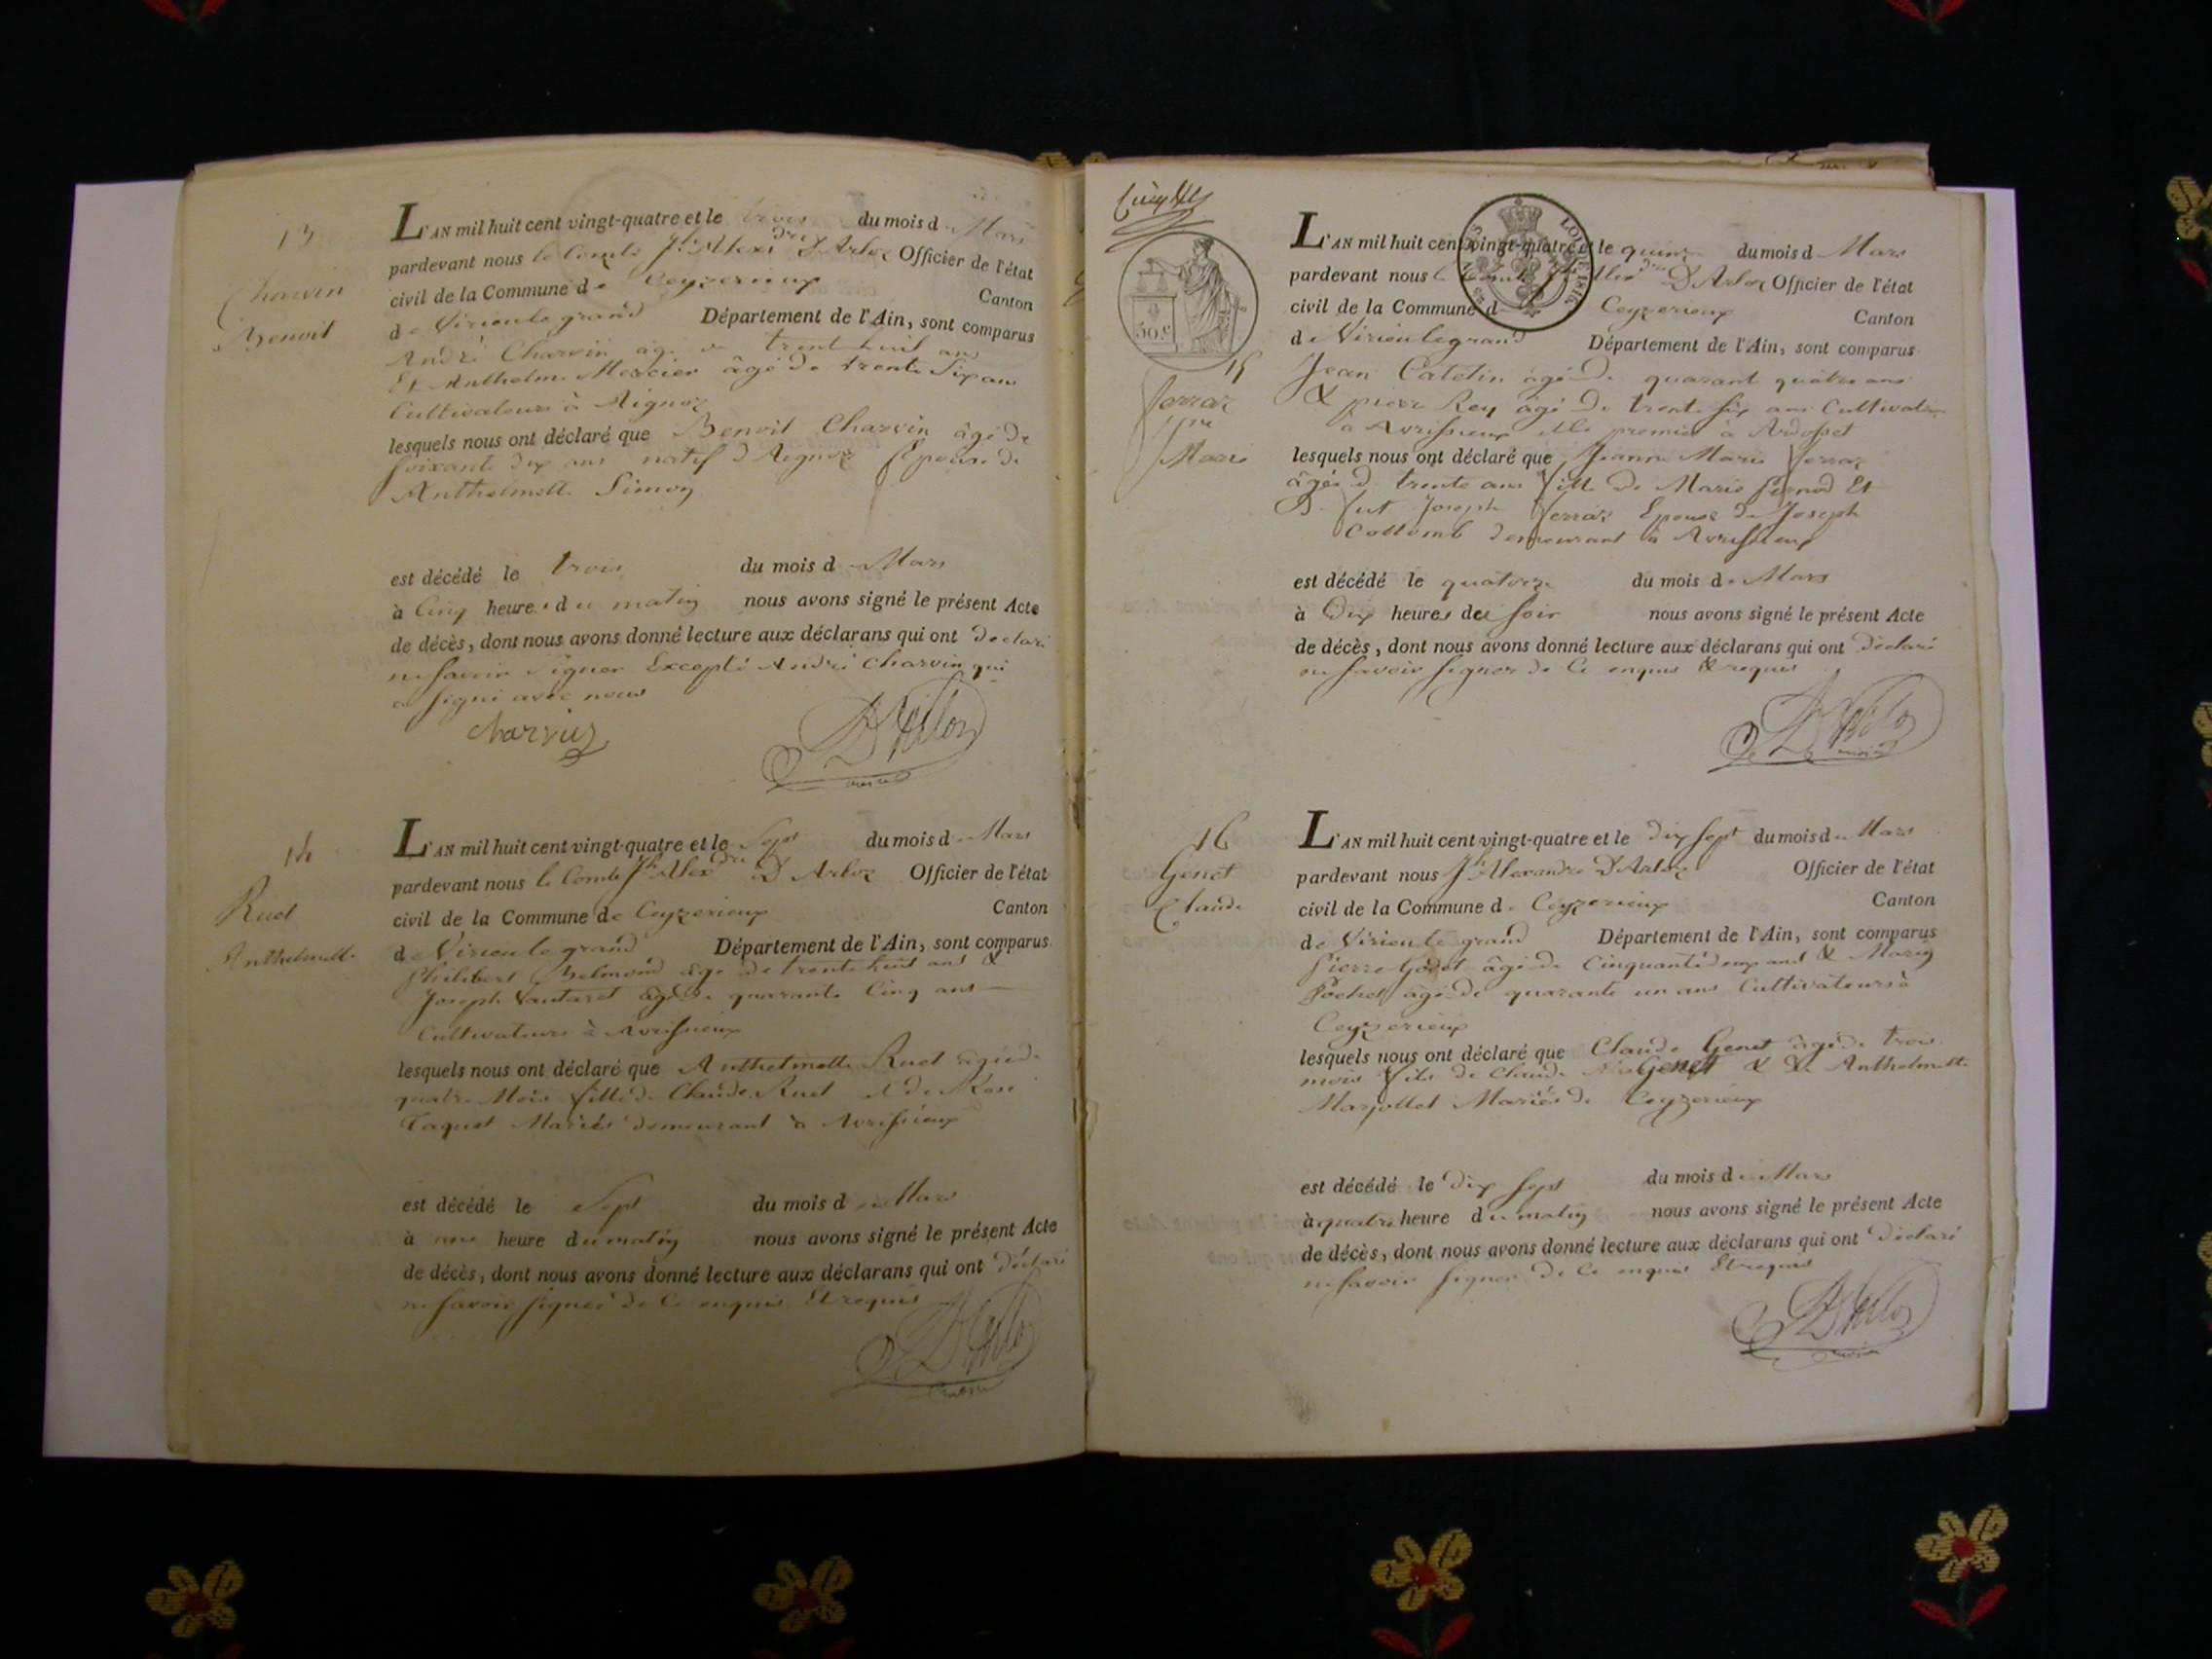 13
Charvin
Benoit
L'AN mil huit cent vingt-quatre et le trois du mois de Mars
pardevant nous le Comte Jh Alexdre D'Arloz Officier de l'état
civil de la Commune de Ceyzerieux Canton
de Virieu le grand Département de l'Ain, sont comparus
André Charvin âgé de trente huit ans
Et Anthelme Mercier âgé de trente Six ans
Cultivateurs à Aignoz
lesquels nous ont déclaré que Benoit Charvin âgé de
soixante dix ans natif d'Aignoz Epoux de
Anthelmette Simon
est décédé le trois du mois de Mars
à Cinq heures du matin nous avons signé le présent Acte
de décès, dont nous avons donné lecture aux déclarans qui ont déclaré
ne savoir signer Excepté André Charvin qui
a signé avec nous
Charvin
14
Ruet
Anthelmette
L'AN mil huit cent vingt-quatre et le Sept du mois de Mars
pardevant nous le Comte Jh Alexdre D'Arloz Officier de l'état
civil de la Commune de Ceyzerieux Canton
de Virieu le grand Département de l'Ain, sont comparus
Philibert Belmond âgé de trente huit ans &
Joseph Vautaret âgé de quarante Cinq ans
Cultivateurs à Avrissieux
lesquels nous ont déclaré que Anthelmette Ruet âgée de
quatre Mois fille de Claude Ruet et de Rose
Taquet Mariés demeurant à Avrissieux
est décédé le Sept du mois de Mars
à une heure du matin nous avons signé le présent Acte
de décès, dont nous avons donné lecture aux déclarans qui ont déclaré
ne savoir signer de Ce enquis Et requis
50.c
15
Ferraz
Marie
L'AN mil huit cent vingt-quatre et le quinze du mois de Mars
pardevant nous le Comte Jh Alexdre D'Arloz Officier de l'état
civil de la Commune de Ceyzerieux Canton
de Virieu le grand Département de l'Ain, sont comparus
Jean Catelin âgé de quarante quatre ans
& pierre Rey âgé de trente six ans Cultivateurs
à Avrissieux et le premier à Ardosset
lesquels nous ont déclaré que Jeanne Marie Ferraz
âgée de trente ans fille de Marie Pernod Et
De fut Joseph Ferraz Epouse de Joseph
Collomb demeurant à Avrissieux
est décédé le quatorze du mois de Mars
à Dix heures du soir nous avons signé le présent Acte
de décès, dont nous avons donné lecture aux déclarans qui ont déclaré
ne savoir signer de Ce enquis & requis
16
Genet
Claude
L'AN mil huit cent vingt-quatre et le dix sept du mois de Mars
pardevant nous Jh Alexandre D'Arloz Officier de l'état
civil de la Commune de Ceyzerieux Canton
de Virieu le grand Département de l'Ain, sont comparus
Pierre Godet âgé de Cinquante deux ans & Marin
Pochet âgé de quarante un ans Cultivateurs à
Ceyzerieux
lesquels nous ont déclaré que Claude Genet âgé de trois
mois fils de Claude Genet & De Anthelmette
Marjollet Mariés de Ceyzerieux
est décédé le dix sept du mois de Mars
à quatre heure du matin nous avons signé le présent Acte
de décès, dont nous avons donné lecture aux déclarans qui ont déclaré
ne savoir signer de Ce enquis Et requis